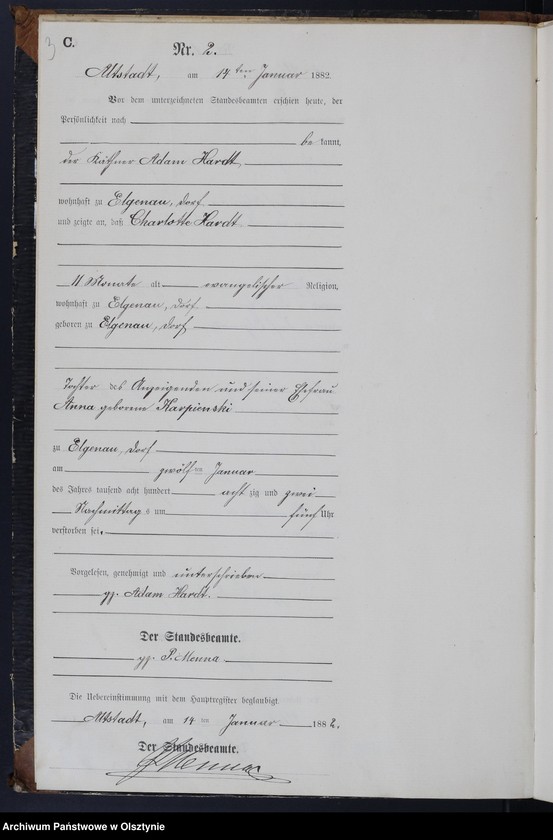 C.
Nr. 2.
Altstadt, am 14ten Januar 1882.
Vor dem unterzeichneten Standesbeamten erschien heute, der
Persönlichkeit nach
be kannt,
der Käthner Adam Hardt
wohnhaft zu Elgenau, Dorf
und zeigte an, daß Charlotte Hardt
11 Monate alt evangelischer Religion,
wohnhaft zu Elgenau, Dorf
geboren zu Elgenau, Dorf
Tochter des Anzeigenden und seiner Ehefrau
Anna geborene Karpienski
zu Elgenau, Dorf
am zwölften Januar
des Jahres tausend acht hundert acht zig und zwei
Nachmittag s um fünf Uhr
verstorben sei.
Vorgelesen, genehmigt und unterschrieben
gz. Adam Hardt.
Der Standesbeamte.
gz. P. Menna
Die Uebereinstimmung mit dem Hauptregister beglaubigt.
Altstadt, am 14ten Januar 1882.
Der Standesbeamte.
Menna
Archiwum Państwowe w Olsztynie